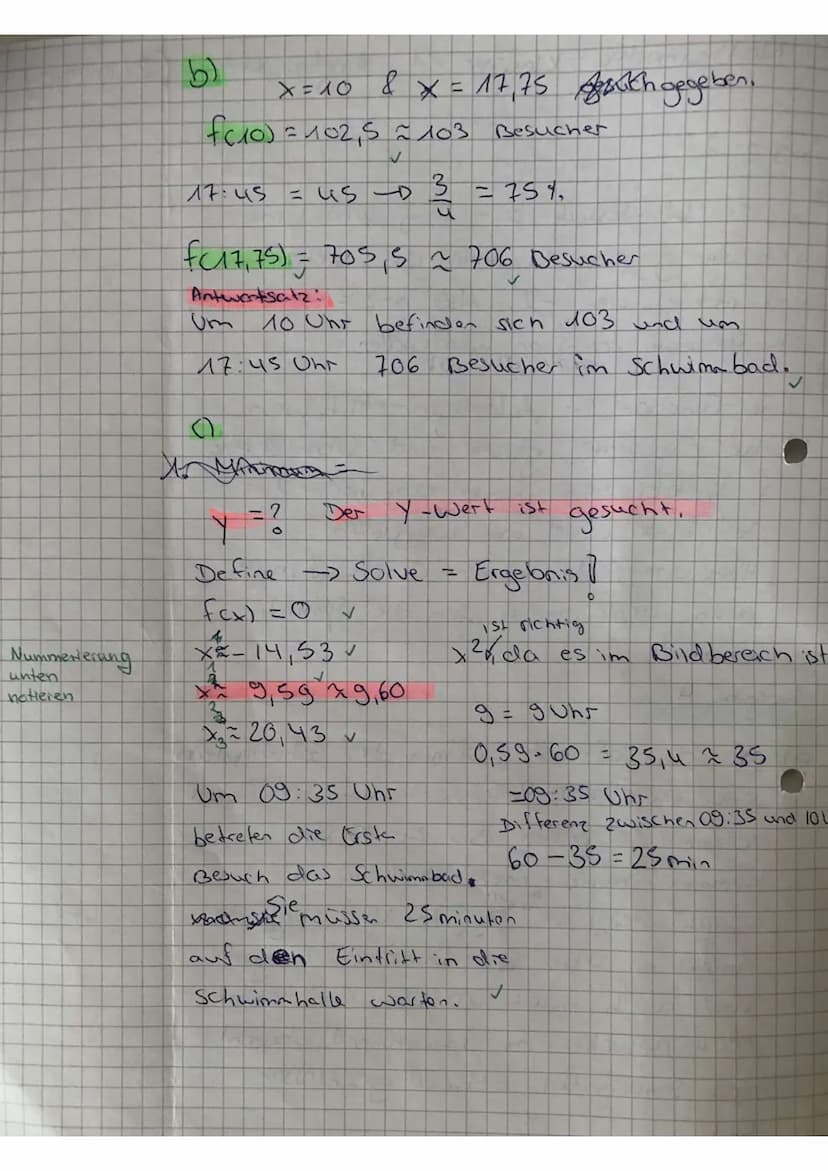 b)
x=10 & x = 17,75 gegeben.
f(10) = 102,5 ≈ 103 Besucher
✓
17:45 = 45 → 3/4 = 75 %
f(17,75) = 705,5 ≈ 706 Besucher
✓ ✓
Antwortsatz:
Um 10 Uhr befinden sich 103 und um
17:45 Uhr 706 Besucher im Schwimmbad. ✓
c)
y = ? Der Y-Wert ist gesucht.
Define → Solve = Ergebnis!
f(x) = 0 ✓
ist richtig
x≈-14,53 ✓
x2, da es im Bildbereich ist
Nummerierung
unten
notieren
x≈ 9,59 ≈ 9,60 ✓
9 = 9 Uhr
x3≈ 20,43 ✓
0,59·60 = 35,4 ≈ 35
Um 09:35 Uhr
=09:35 Uhr
betreten die Erste
Differenz zwischen 09:35 und 10
60 - 35 = 25 min
Besuch das Schwimmbad.
Sie müssen 25 minuten
auf den Eintritt in die
Schwimmhalle warten. ✓